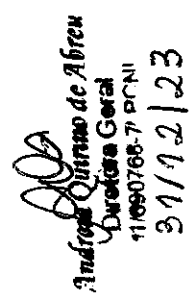 Andreia Quirino de Abreu
Diretora Geral
11/690766-7/ PCNI
31/12/23